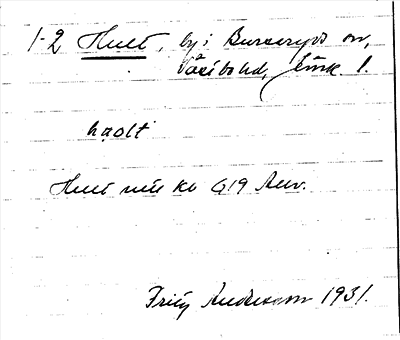 1-2 Hult, by i Burseryds sn,
Västbo hd, Jönk. l.
hạolt
Hult utit kb G19 Aev.
Fritz Andersson 1931.